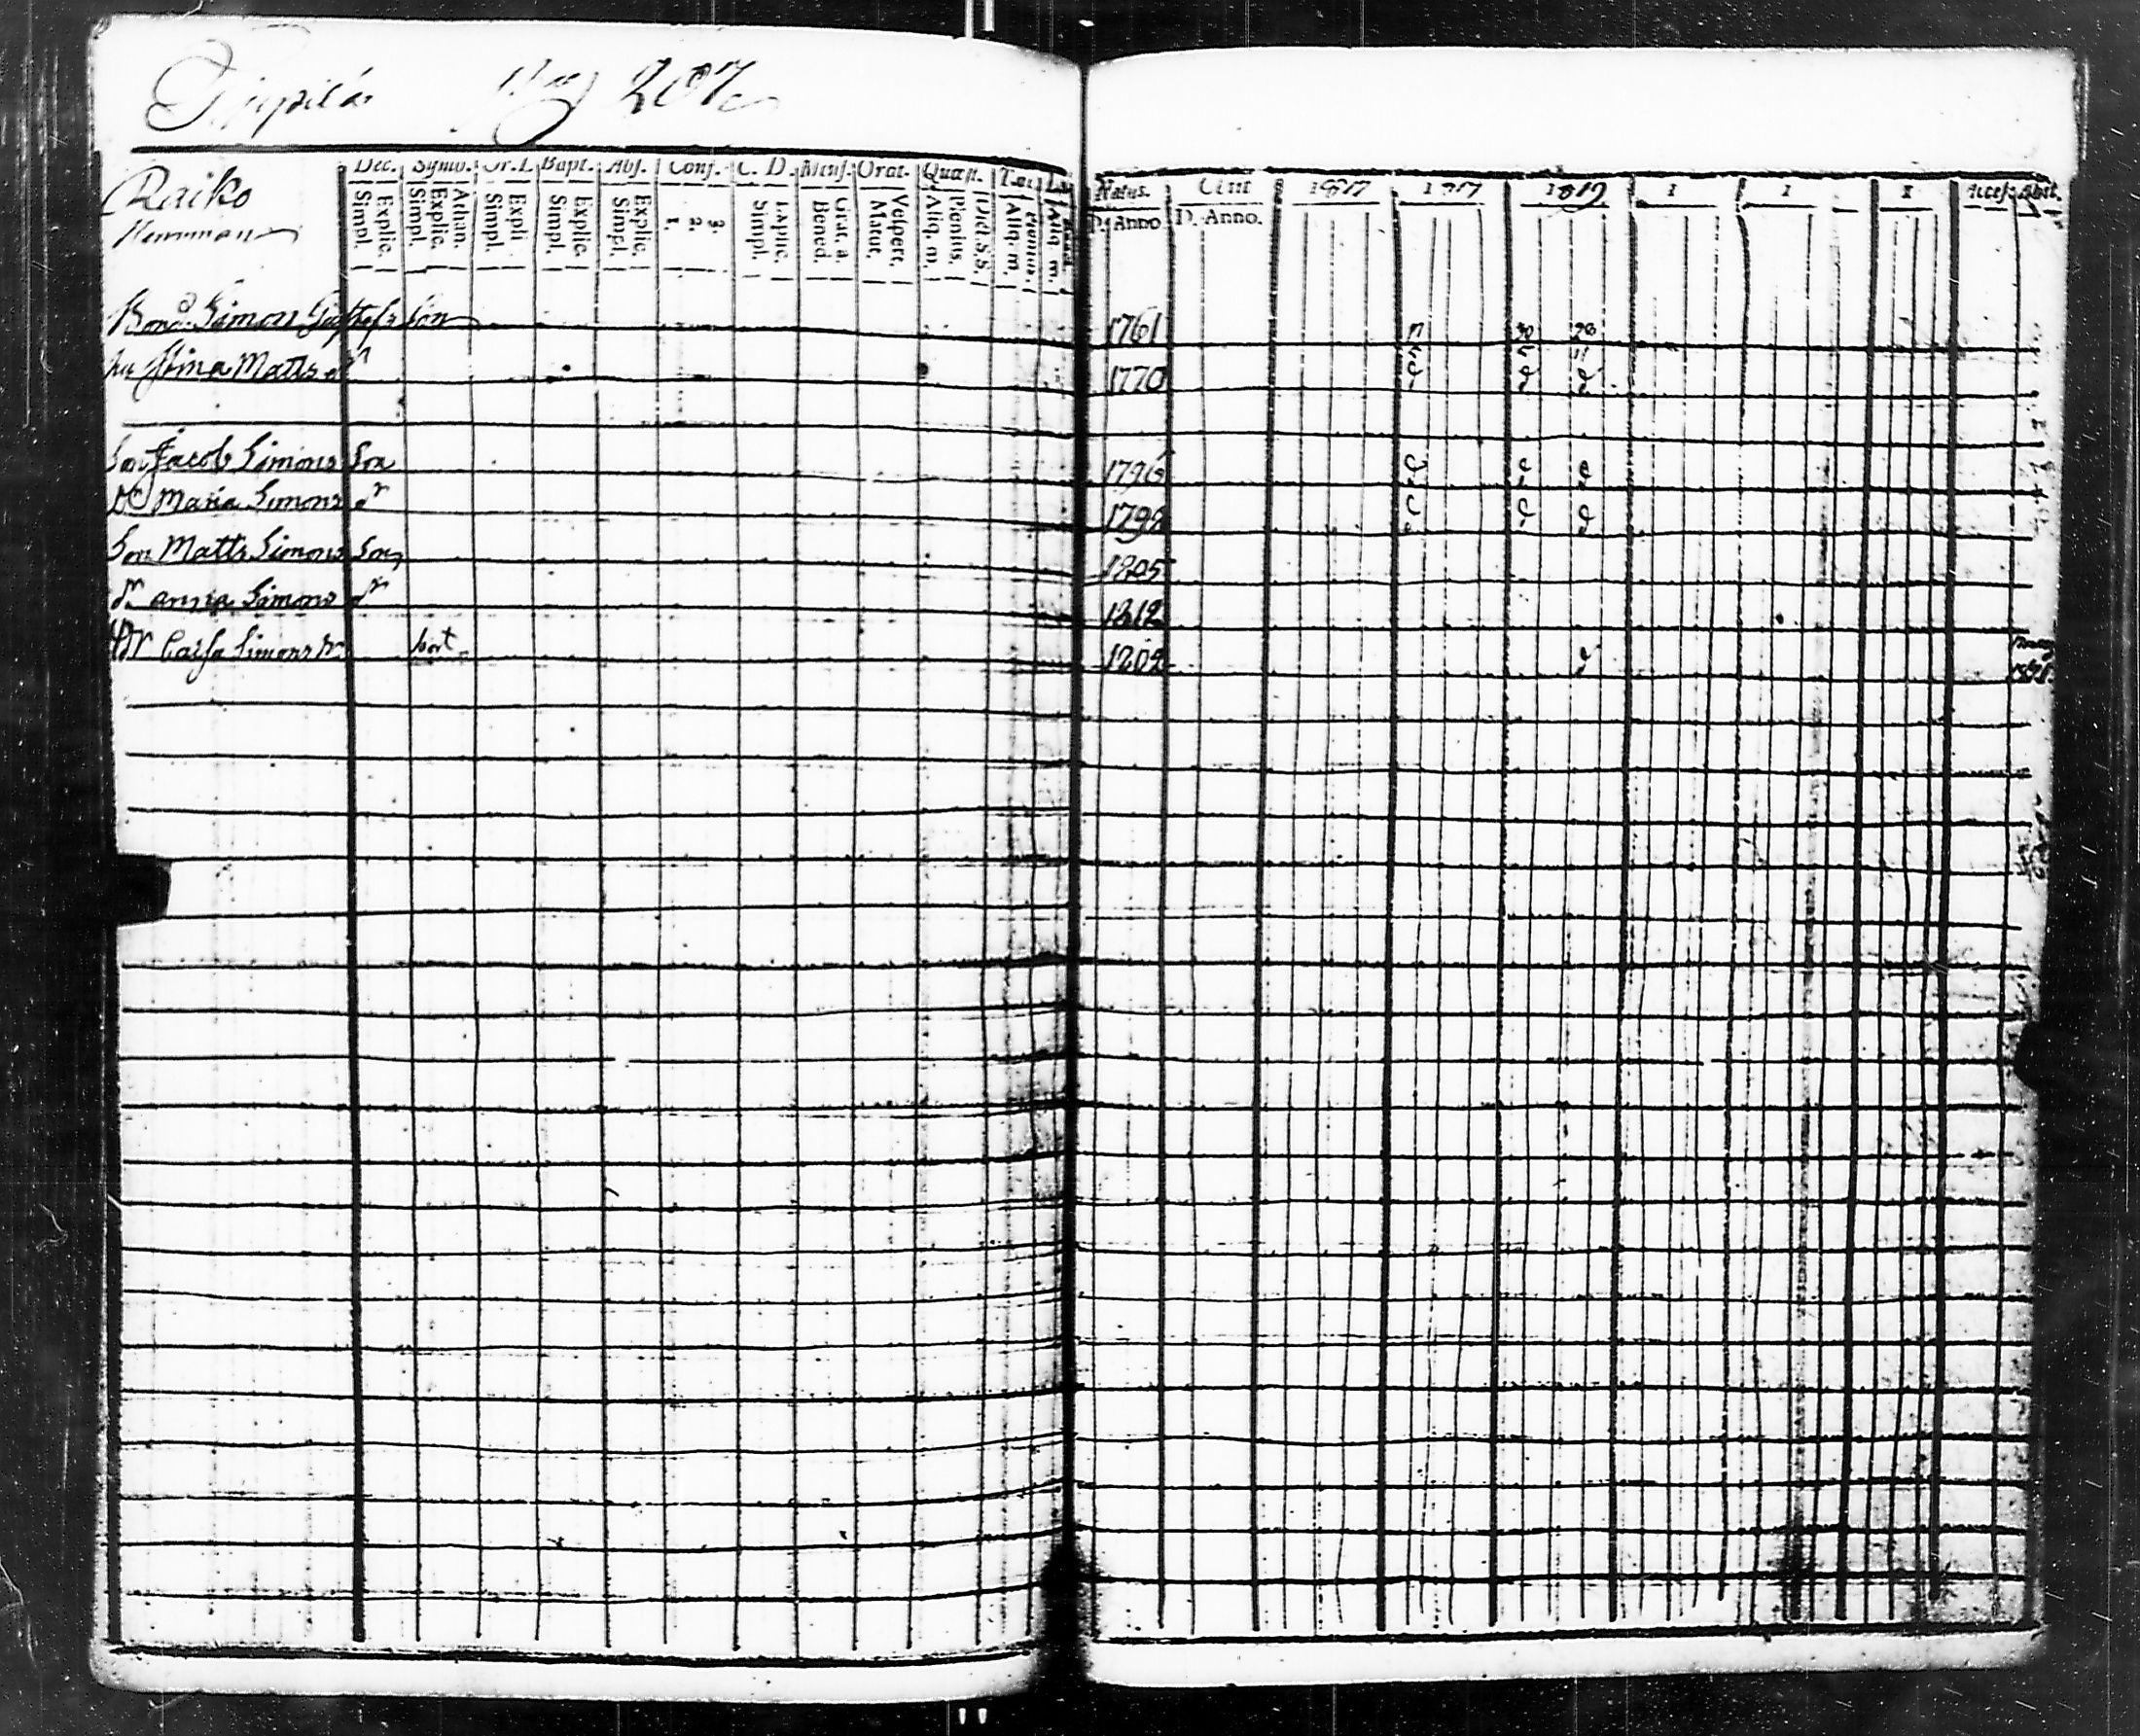 Pag 207
Raiko
Hemman
Dec. Symb. Or. D. Bapt. Abs. Conf. C. D. Mens. Orat. Quæst.
Simpl. Explic. Simpl. Explic. Athan. Simpl. Expli Simpl. Explic. Simpl. Explic. 1. 2. 3. Simpl. Explic. Bened. Grat. a. Matut. Vespert. Aliq. m. Plenius. Dict. S. S. Aliq. m. Aliq. m.
Natus. 1817 1817 1819 1 1 1 Access. Abit.
D. Anno D. Anno.
Bond. Simon Gustafs Son 1761 30 28
hu Stina Matts dr 1770
Son Jacob Simons Son 1796
Dr Maria Simons dr 1798
Son Matts Simons Son 1805
dr anna Simons dr 1812
Dr Caisa Simons dr bort 1802